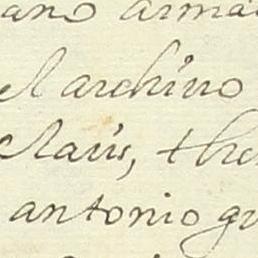 ano arma
el archivo
Claus, the
antonio gu